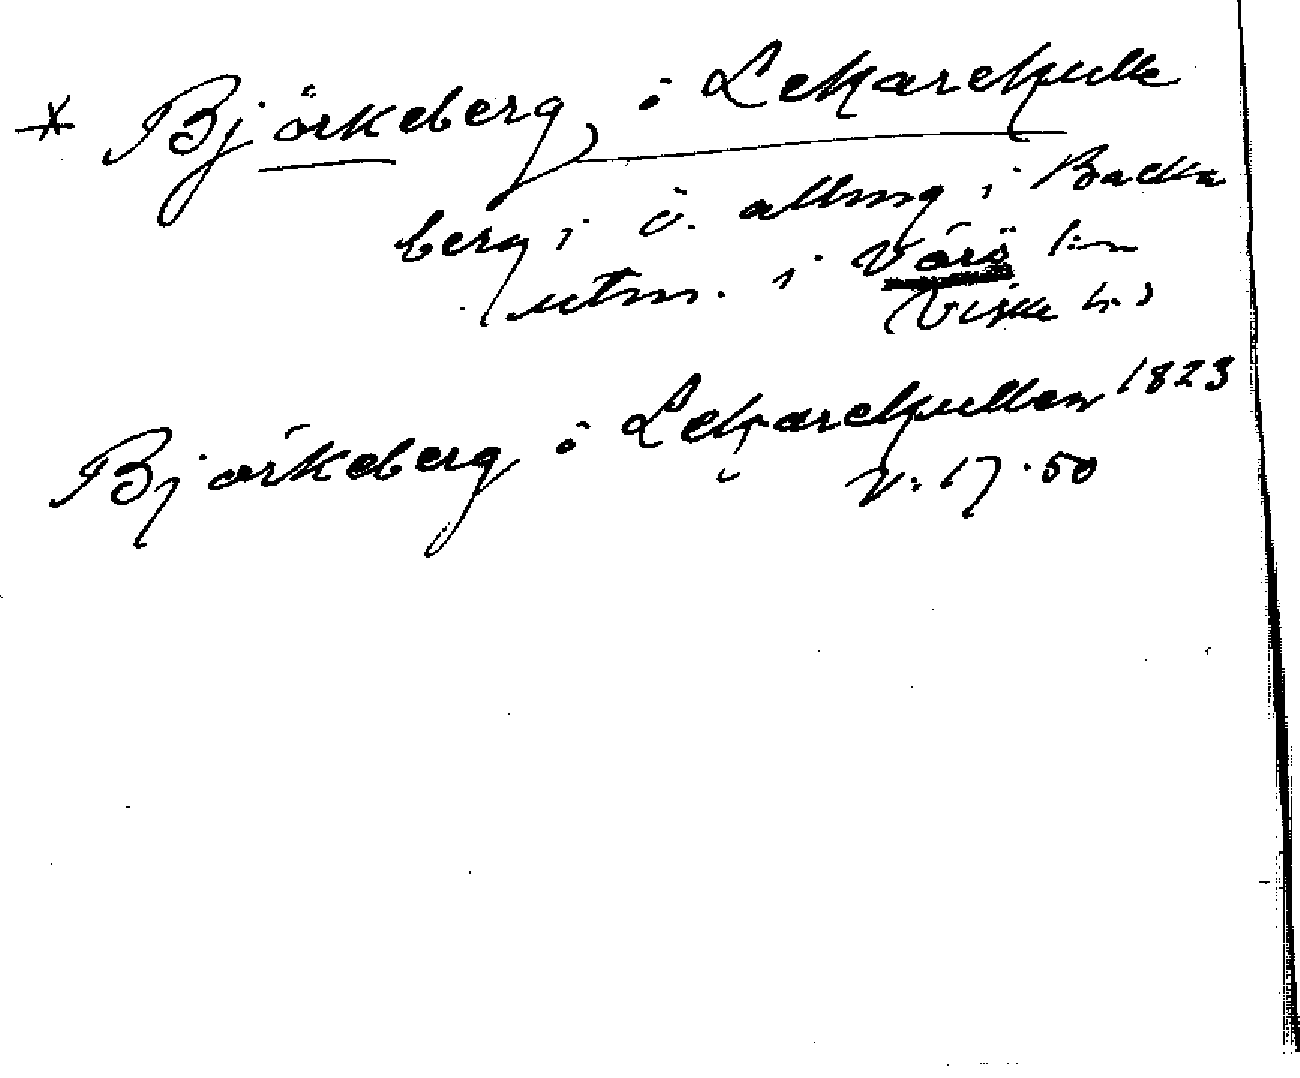 * Björkeberg, i Lekarekulle
berg i ö. allmg i Backa
utm. i Värö sn
Viske hd
Björkeberg i Lekarekullen 1823
v. 17.50